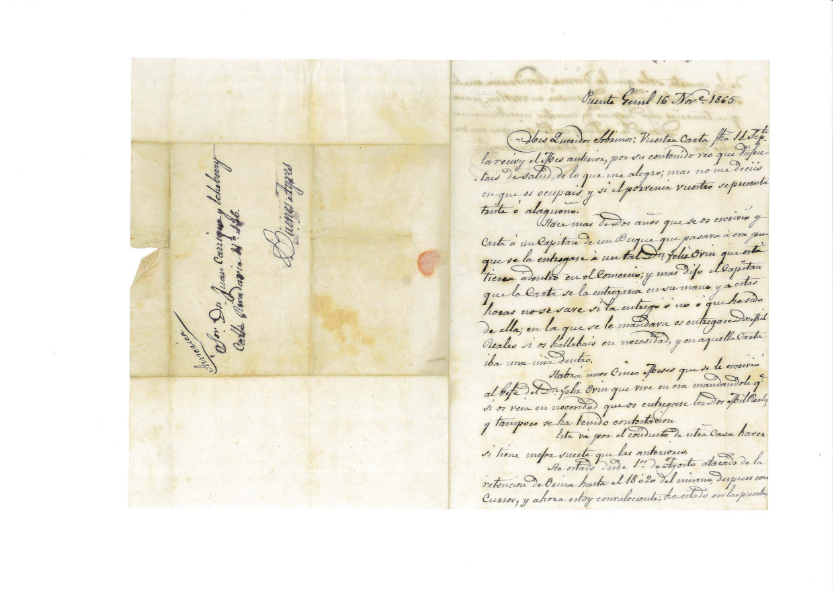 Sor. Dn. Juan Carrique y
Calle Rivadavia N.º
Buenos Ayres
Puente Genil 16 Nov.e 1865
Mis Queridos Sobrinos: Vuestra Carta fha 1 d Septe.
la recivy el Mes anterior, por su contenido veo que disfru-
tais de salud, de lo que me alegro; mas no me deciis
en que os ocupais y si el porvenir vuestro se presenta
triste ó alagueño.
Hace mas de dos años que se os escrivió y
Carta á un Capitan de un Buque que pasava á esa para
que se la entregase á un tal Dn. Felis Ovin que está
tierra adentro en el Comercio; y mas dijo el Capitan
que la Carta se la entregaria en su mano, y a estas
horas no se save si la entregó ó no ó que ha sido
de ella; en la que se le mandava os entregase Dos Mil
Reales si os hallabais en necesidad, y en aquella Carta
iba una mia dentro.
Habrá unos Cinco Meses que se le escrivió
al Gefe del Dn. Felis Ovin que vive en esa mandandole q.e
si os veia en necesidad que os entregase los Dos Mil Reales,
y tampoco se ha tenido contestacion.
Esta vá por el conducto de otra Casa haver
si tiene mejor suerte que las anteriores.
He estado desde 1.º de Agosto atacado de la
retencion de Orina hasta el 18 ó 20 del mismo, despues con
y ahora estoy convaleciente, he estado en las puertas